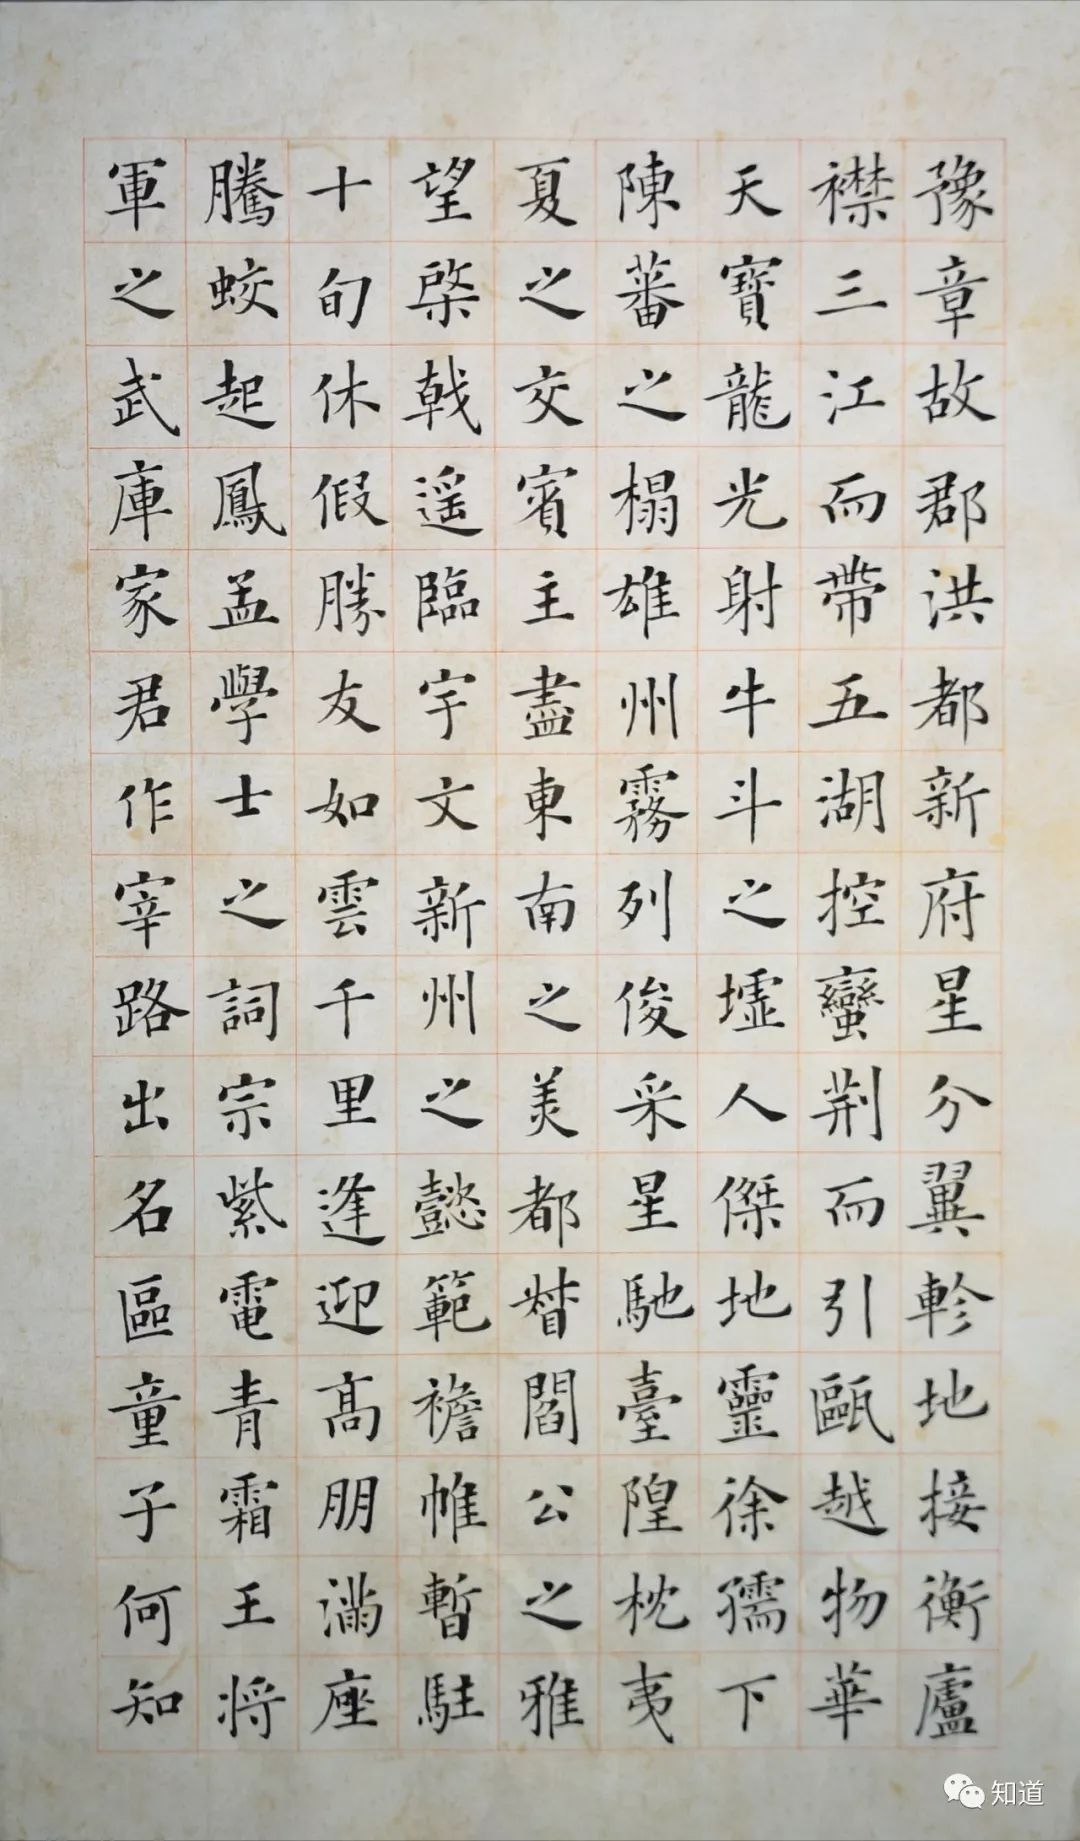 豫章故郡洪都新府星分翼軫地接衡廬
襟三江而帶五湖控蠻荆而引甌越物華
天寶龍光射牛斗之墟人傑地靈徐孺下
陳蕃之榻雄州霧列俊采星馳臺隍枕夷
夏之交賓主盡東南之美都督閻公之雅
望棨戟遥臨宇文新州之懿範襜帷暫駐
十旬休假勝友如雲千里逢迎高朋滿座
騰蛟起鳳孟學士之詞宗紫電青霜王将
軍之武庫家君作宰路出名區童子何知
知道